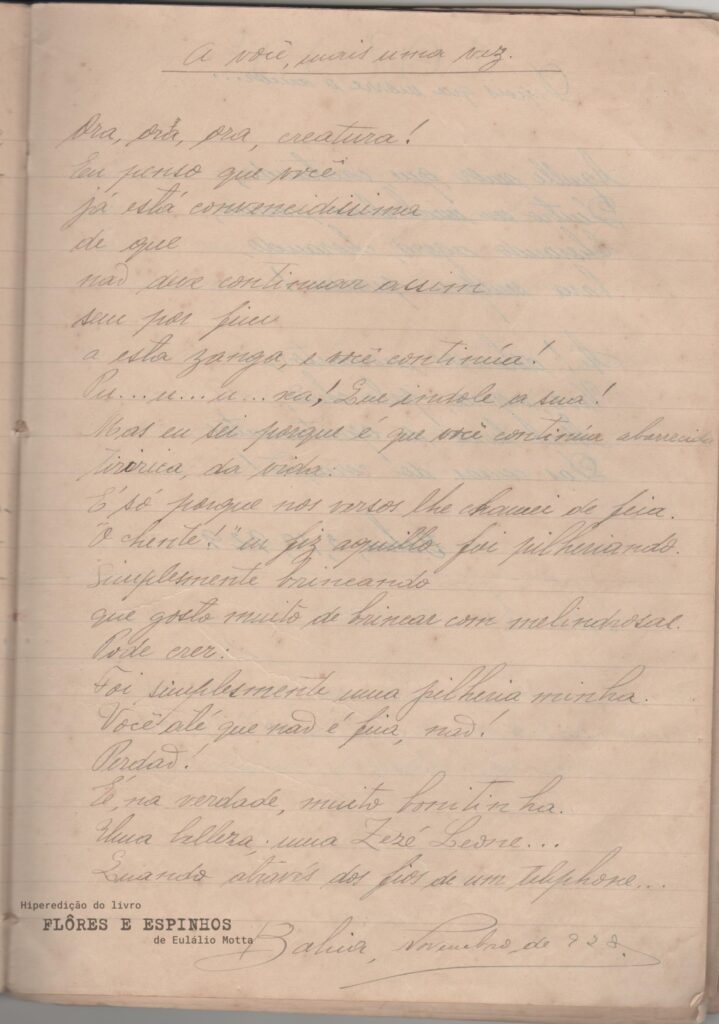 A você, mais uma vez.
Ora, ora, ora, creatura!
Eu penso que você
já está convencidissima
de que
não deve continuar assim
sem por fim
a esta zanga, e você continúa!
Pu...u...u...xa! Que indole a sua!
Mas eu sei porque é que você continúa aborrecida
tiririca, da vida:
É só porque nos versos lhe chamei de feia.
"O chente!" eu fiz aquillo foi pilheriando.
Simplesmente brincando
que gosto muito de brincar com melindrosas.
Pode crer:
Foi simplesmente uma pilheria minha.
Você até que não é feia, não!
Perdão!
É, na verdade, muito bonitinha.
Uma belleza; uma Zezé Leone...
Quando através dos fios de um telephone...
Bahia, Novembro de 928.
Hiperedição do livro
FLÔRES E ESPINHOS
de Eulálio Motta